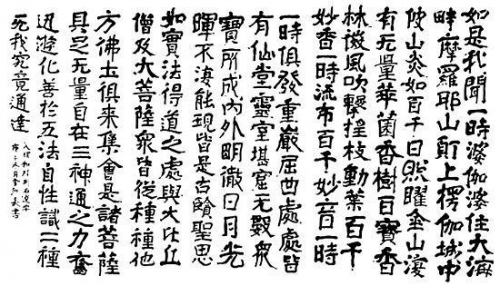 如是我聞一時婆伽住大海
畔摩羅耶山頂上楞伽城中
彼山炎如百千日照曜金山復
有无量華園香樹皆寶香
林微風吹擊搖枝動葉百千
妙香一時流布百千妙音一時
一時俱發重巖屈曲處處皆
有仙堂靈室堪窟无數眾
寶所成內外明徹日月光
暉不復能現皆是古賢聖思
如實法得道之處與大比丘
僧及大菩薩眾皆從種種他
方佛土俱來集會是諸菩薩
具足无量自在三神通之力奮
迅遊化善於五法自性識二種
无我究竟通達